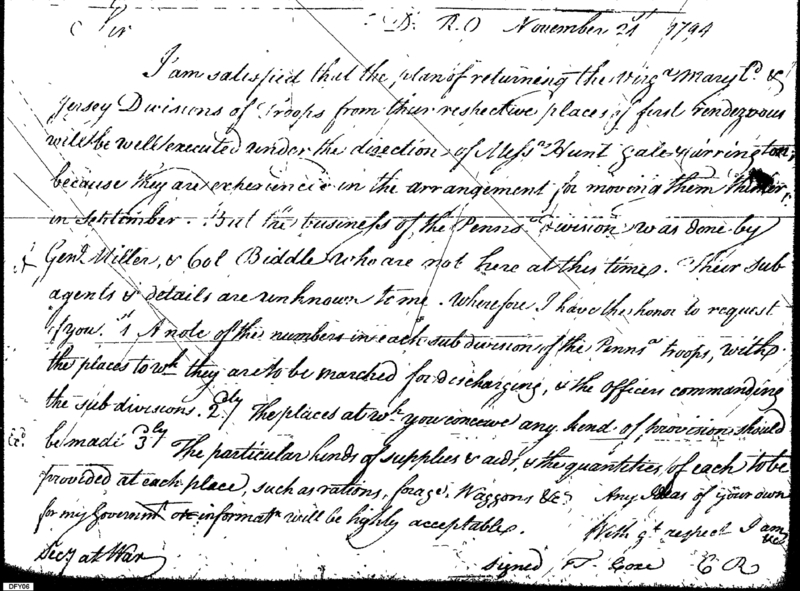 Sir T. D. R. O November 21st 1794
I am satisfied that the plan of returning the Virga Maryld &
Jersey Divisions of Troops from their respective places of first rendezvous
will be well executed under the direction of Messrs Hunt Gale & Yarrington,
because they are experienc'd in the arrangement for moving them thither
in September. But the business of the Pennsa division was done by
Genl Miller, & Col Biddle who are not here at this time. Their sub
agents & details are unknown to me. Wherefore I have the honor to request
of you. 1st A note of the numbers in each sub division of the Pennsa troops, with
the places to wh they are to be marched for discharging, & the officers commanding
the sub divisions. 2dly The places at wh you conceive any kind of provision should
be made 3ly The particular kinds of supplies & aids, & the quantities of each to be
provided at each place, such as rations, forage, Waggons &c. Any Ideas of your own
for my Governmt or informatn will be highly acceptable.
With gt respect I am
&c
Secy at War
signed T. Coxe C R
DFY06